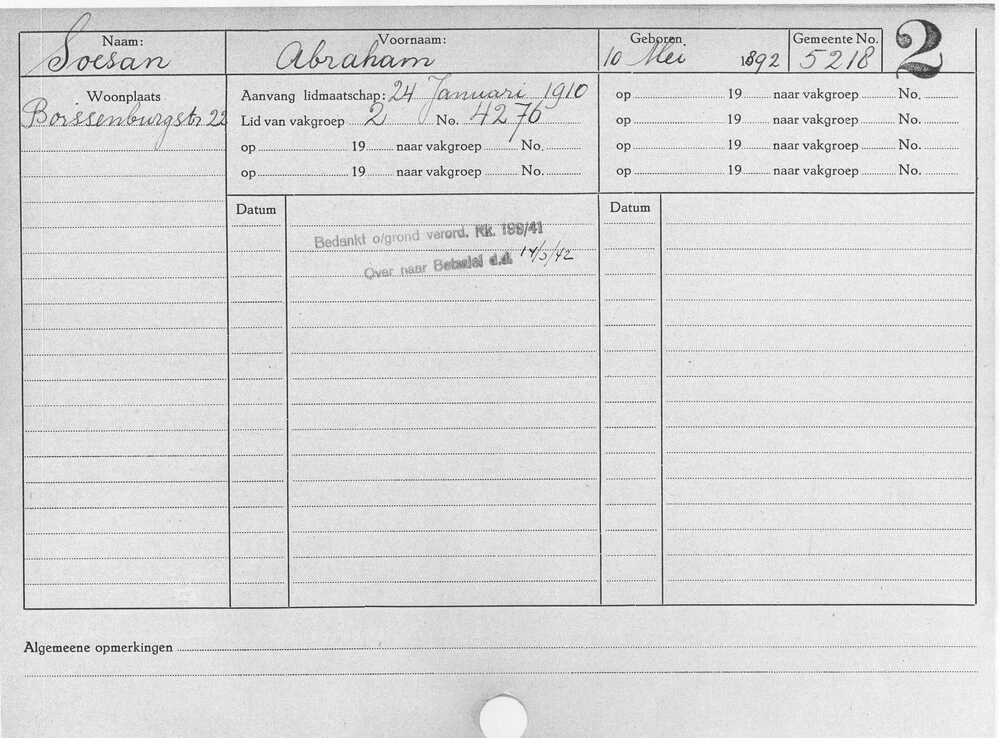 Naam: Voornaam: Geboren Gemeente No. 2
Soesan Abraham 10 Mei 1892 5218
Woonplaats
Borssenburgstr 22
Aanvang lidmaatschap: 24 Januari 1910
Lid van vakgroep 2 No. 4276
op 19 naar vakgroep No.
op 19 naar vakgroep No.
op 19 naar vakgroep No.
op 19 naar vakgroep No.
op 19 naar vakgroep No.
op 19 naar vakgroep No.
Datum Datum
Bedankt o/grond verord. Rk. 199/41
Over naar d.d. 14/3/42
Algemeene opmerkingen